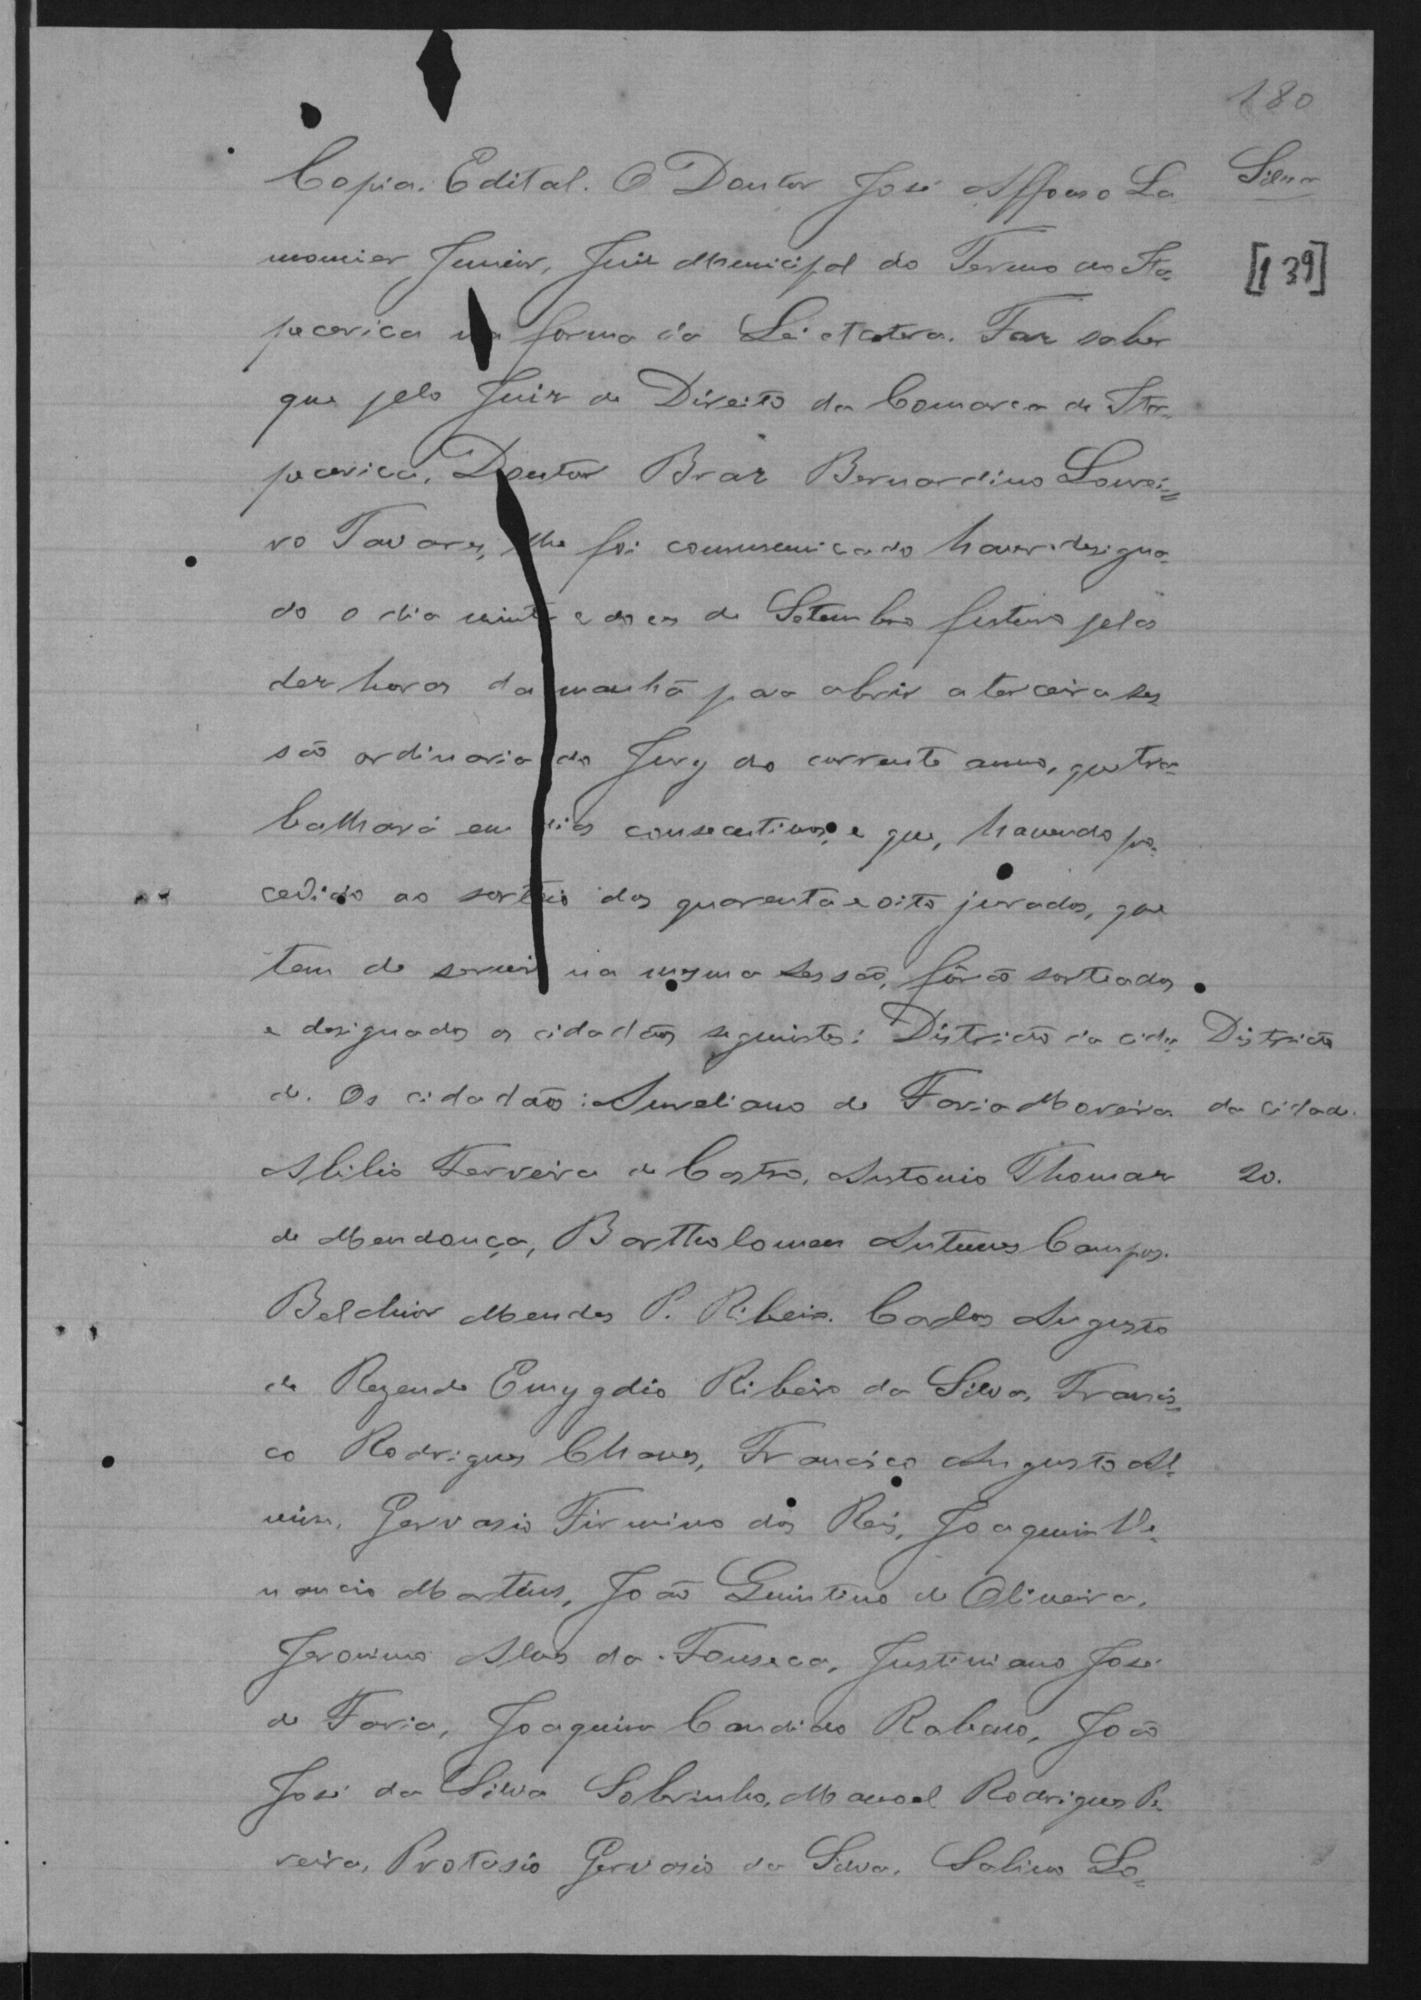 180
Silva
[139]
Copia. Edital. O Doutor José Affonso La
mounier Junior, Juiz Municipal do Termo de Ita-
pecerica na forma da Lei etcetera. Faz saber
que pelo Juiz de Direito da Comarca de Ita-
pecerica, Doutor Braz Bernardino Lourei=
ro Tavares, lhe foi communicado haver designa-
do o dia vinte e dous de Setembro futuro pelas
dez horas da manhã para abrir a terceira ses
são ordinaria do Jury do corrente anno, que tra-
balhará em dias consecutivos, e que, havendo pro-
cedido ao sorteio dos quarenta e oito jurados, que
tem de servir na mesma sessão, fôrão sorteados
e designados os cidadãos seguintes: Districto da cida-
de. Os cidadão: Aureliano de Faria Moreira
Districto
da cidade.
20.
Abilio Ferreira de Castro, Antonio Thomaz
de Mendonça, Bartholomeu Antunes Campos.
Belchior Mendes P. Ribeiro. Carlos Augusto
de Rezende Emygdio Ribeiro da Silva, Francis=
co Rodrigues Chaves, Francisco Augusto Al
vim, Gervasio Firmino dos Reis, Joaquim Ve-
nancio Martins, João Quintino de Oliveira,
Jeronimo Alves da Fonseca, Justiniano José
de Faria, Joaquim Candido Rabelo, João
José da Silva Sobrinho, Manoel Rodrigues Pe
reira, Protasio Gervasio da Silva, Sabino Lo=